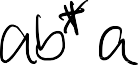 ab* a